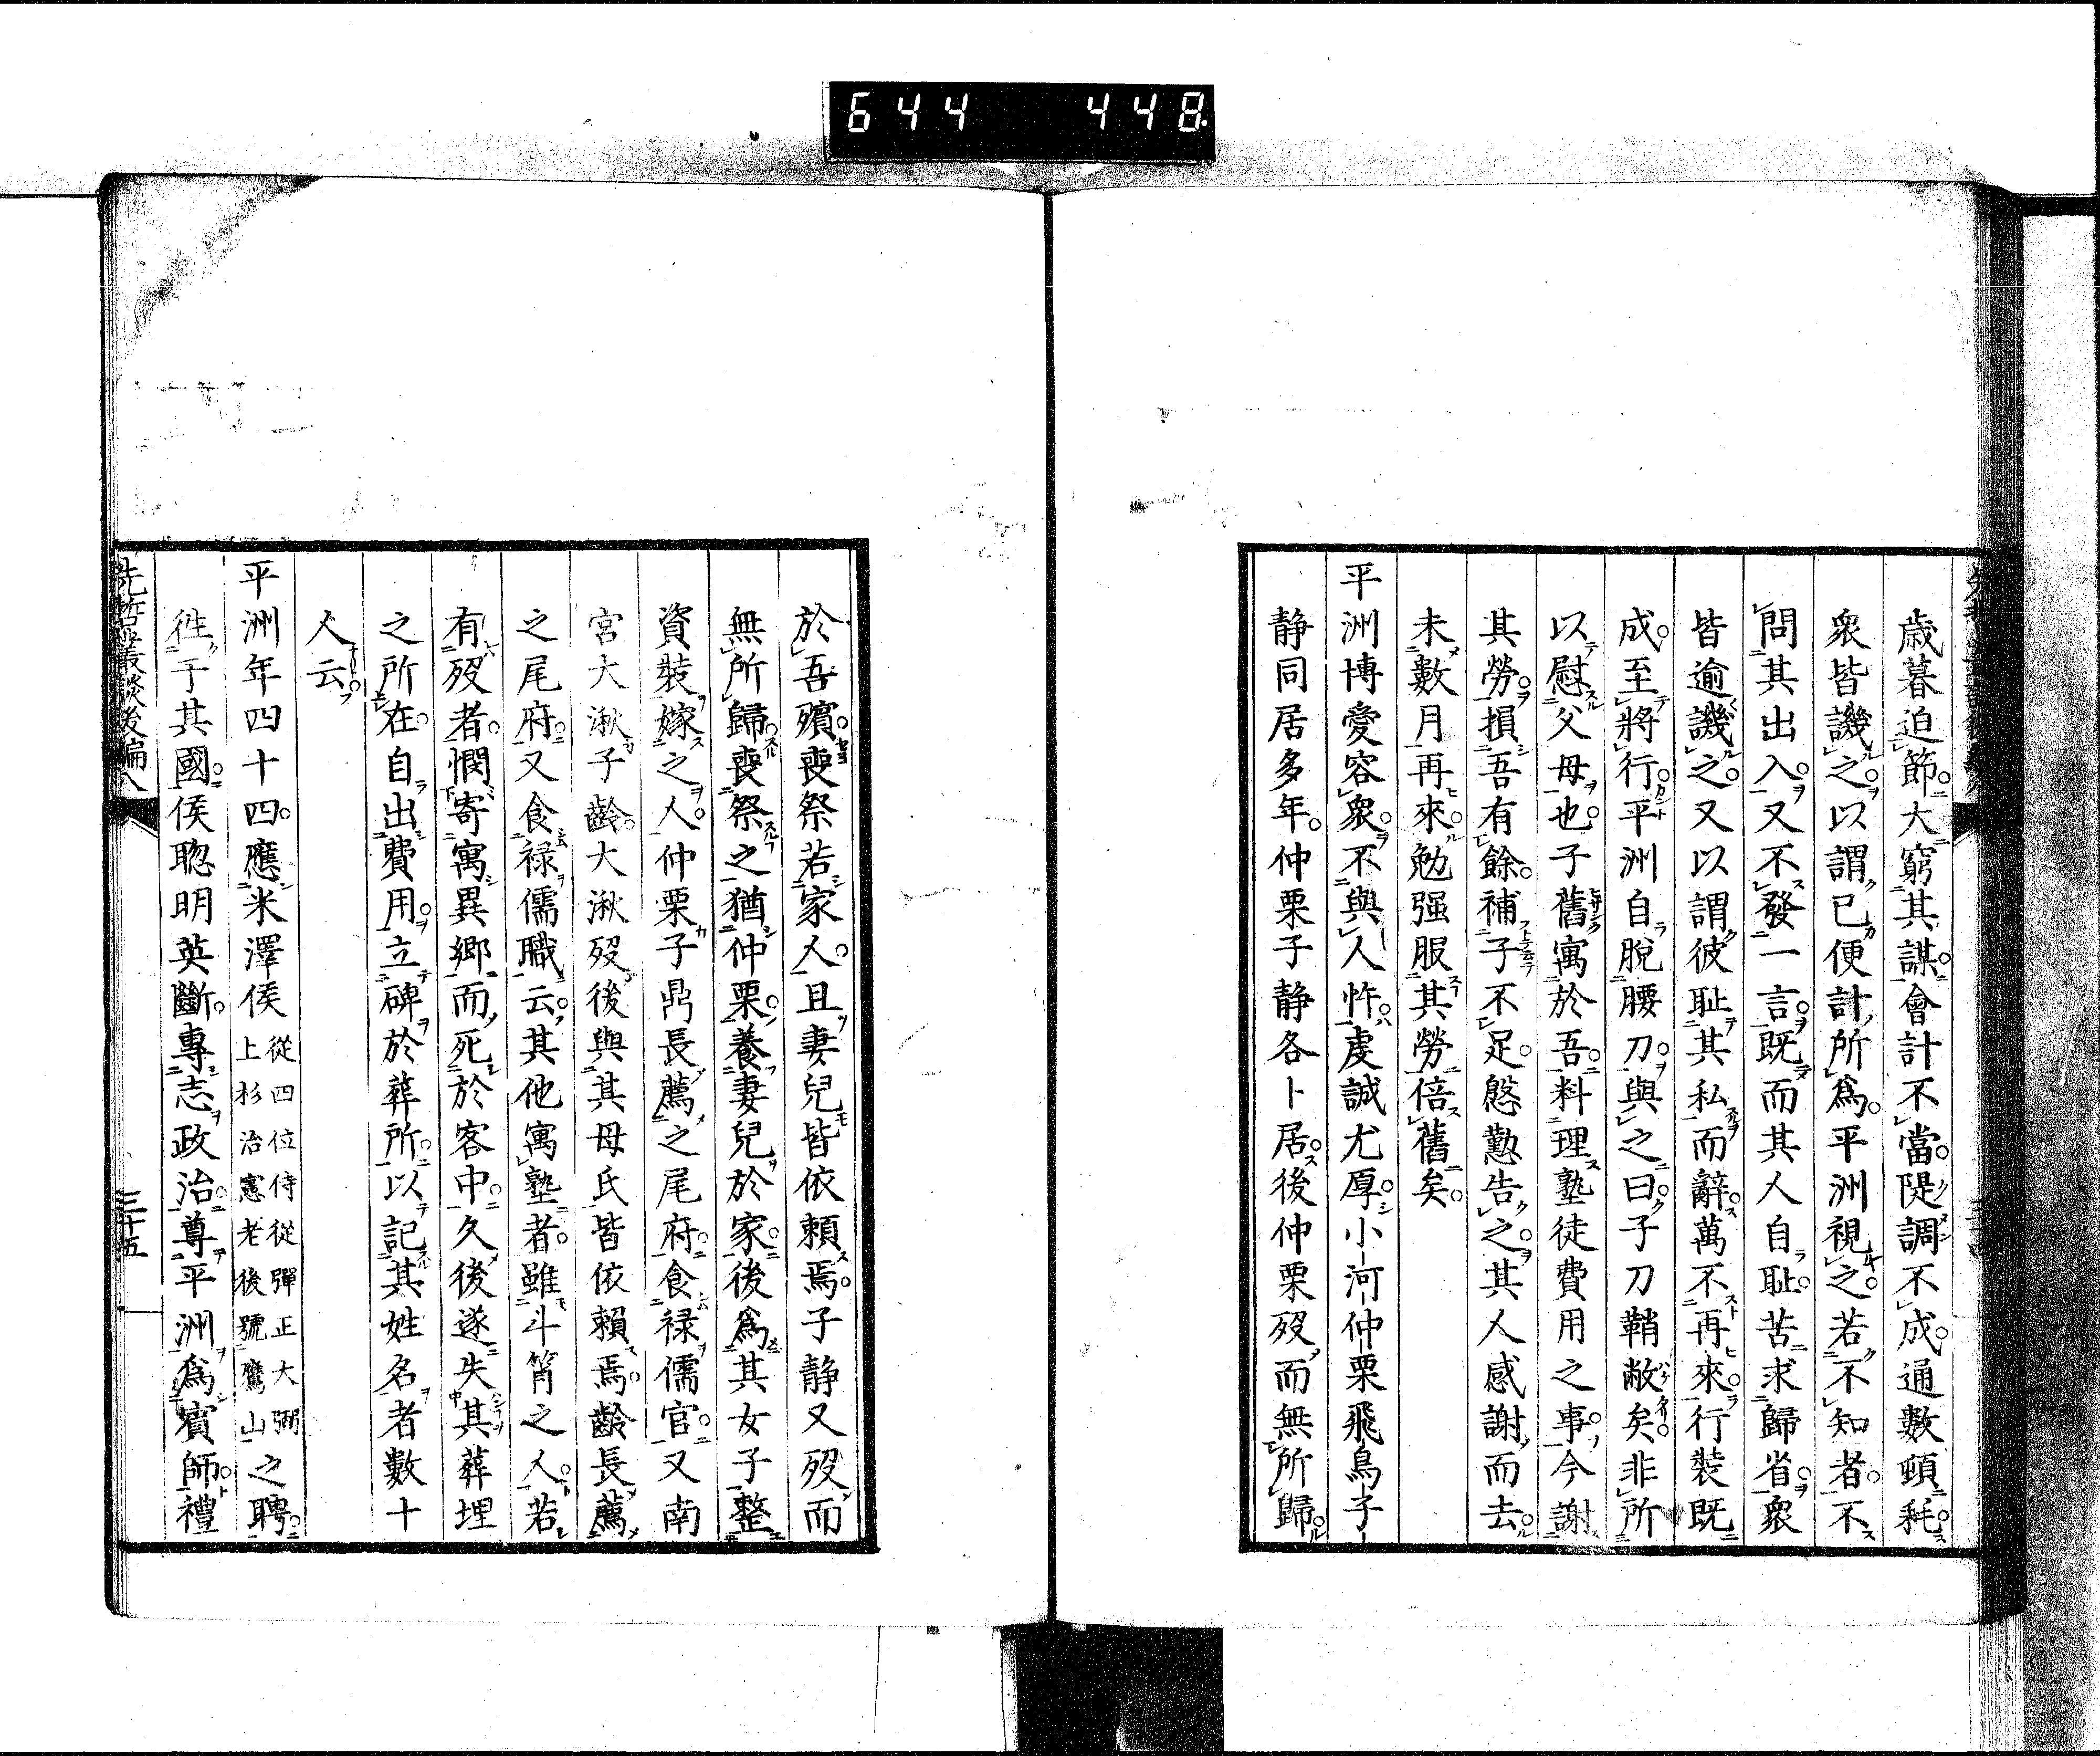 644 448
歳暮迫節大窮其謀會計不當隄調不成通數頓耗
衆皆譏之以謂已便計所爲平洲視之若不知者不
問其出入又不發一言既而其人自耻苦求歸省衆
皆逾譏之又以謂彼耻其私而辭萬不再來行裝既
成至將行平洲自脫腰刀與之曰子刀鞘敝矣非所
以慰父母也子舊寓於吾料理塾徒費用之事今謝
其勞損吾有餘補子不足慇懃告之其人感謝而去
未數月再來勉强服其勞倍舊矣
平洲博愛容衆不與人忤虔誠尤厚小河仲栗飛鳥子
静同居多年仲栗子静各卜居後仲栗歿而無所歸
於吾殯喪祭若家人且妻兒皆依賴焉子静又歿而
無所歸喪祭之猶仲栗養妻兒於家後爲其女子整
資裝嫁之人仲栗子鼎長薦之尾府食禄儒官又南
宮大湫子齡大湫歿後與其母氏皆依賴焉齡長薦
之尾府又食禄儒職云其他寓塾者雖斗筲之人若
有歿者憫寄寓異郷而死於客中久後遂失其葬埋
之所在自出費用立碑於葬所以記其姓名者數十
人云
平洲年四十四應米澤侯從四位侍從彈正大弼上杉治憲老後號鷹山之聘
徃于其國侯聡明英斷專志政治尊平洲爲賓師禮
先哲叢談後編八
三十五